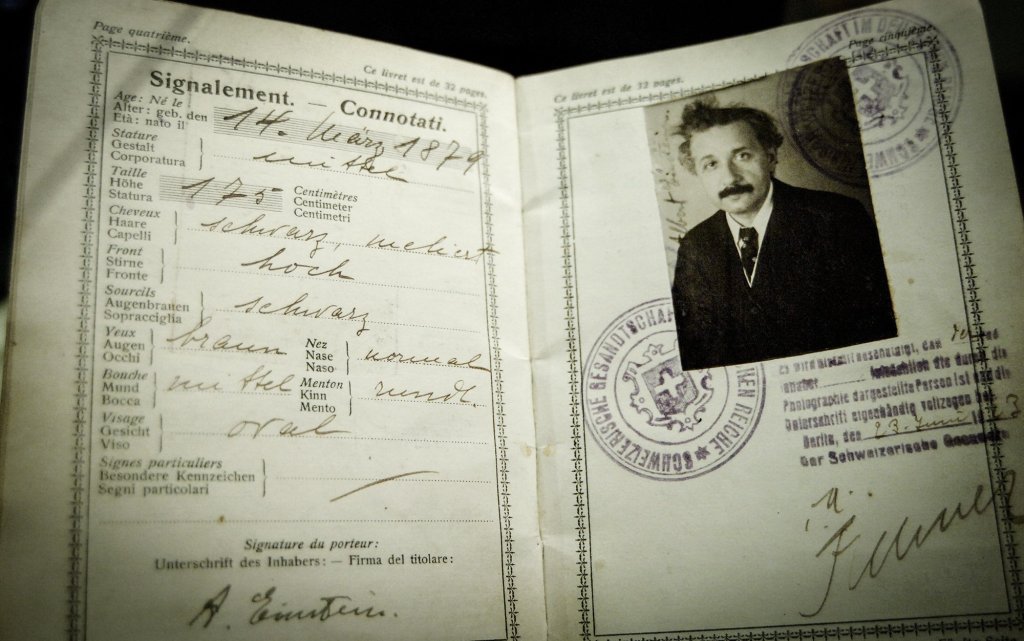 Page quatrième.
Ce livret est de 32 pages.
Signalement. — Connotati.
Age: Né le
Alter: geb. den
Età: nato il
14. März 1879
Stature
Gestalt
Corporatura
mittel
Taille
Höhe
Statura
175
Centimètres
Centimeter
Centimetri
Cheveux
Haare
Capelli
schwarz, meliert
Front
Stirne
Fronte
hoch
Sourcils
Augenbrauen
Sopracciglia
schwarz
Yeux
Augen
Occhi
braun
Nez
Nase
Naso
normal
Bouche
Mund
Bocca
mittel
Menton
Kinn
Mento
rund.
Visage
Gesicht
Viso
oval
Signes particuliers
Besondere Kennzeichen
Segni particolari
Signature du porteur:
Unterschrift des Inhabers: — Firma del titolare:
A. Einstein.
Page cinquième.
Ce livret est de 32 pages.
SCHWEIZERISCHE GESANDTSCHAFT REICHE
Es wird hiermit bescheinigt, daß der
Inhaber die durch die
Photographie dargestellte Person ist und die
Unterschrift eigenhändig vollzogen hat
Berlin, den 23. Juni
Der Schweizerische